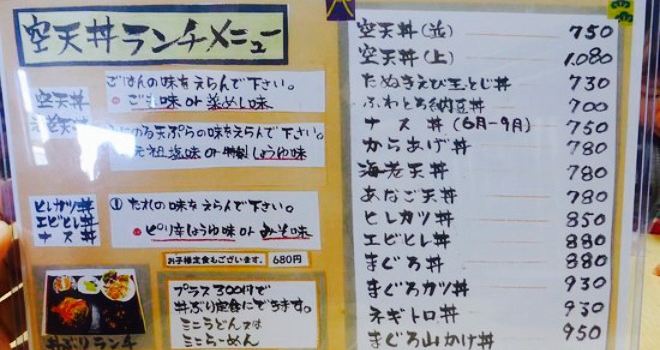 空天丼ランチメニュー
空天丼
海老天丼
ごはんの味をえらんで下さい。
ごま味 or 菜めし味
のる天ぷらの味をえらんで下さい。
元祖塩味 or 特製しょうゆ味
ヒレカツ丼
エビヒレ丼
ナス丼
① たれの味をえらんで下さい。
ピリ辛しょうゆ味 or みそ味
お子様定食もございます。 680円
プラス300円で
丼ぶり定食にできます。
ミニうどん又は
ミニらーめん
丼ぶりランチ
空天丼(並) 750
空天丼(上) 1.080
たぬきえび玉とじ丼 730
ふわとろ納豆丼 700
ナス丼(6月-9月) 750
からあげ丼 780
海老天丼 780
あなご天丼 780
ヒレカツ丼 850
エビヒレ丼 880
まぐろ丼 880
まぐろカツ丼 930
ネギトロ丼 930
まぐろ山かけ丼 950